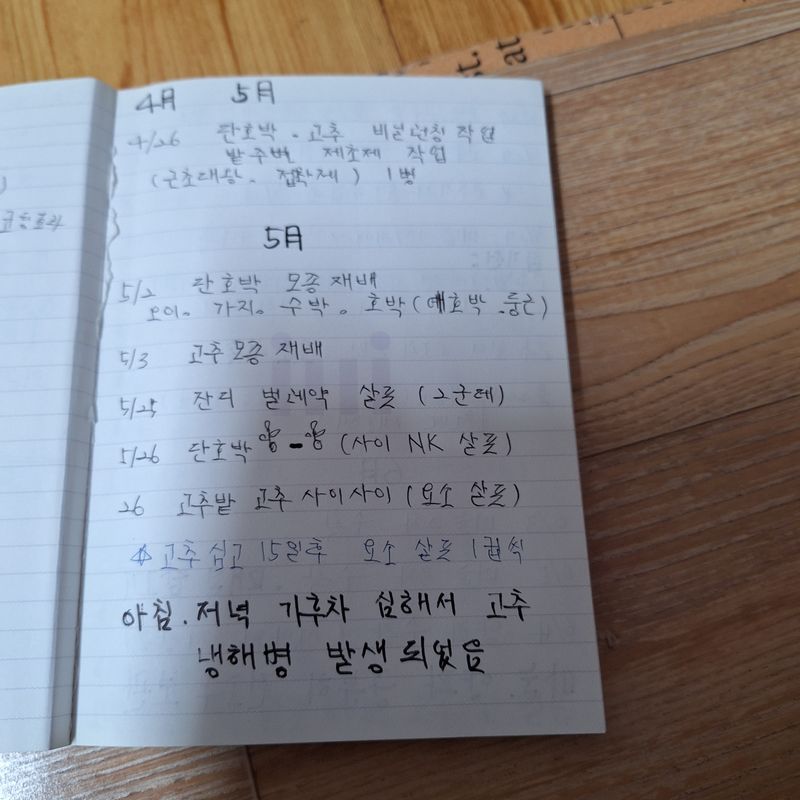 st.
at
금등효과
4月 5月
4/26 단호박.고추 비닐런칭 작업
밭주변 제초제 작업
(근초대왕. 접착제) 1병
5月
5/2 단호박 모종재배
오이. 가지. 수박. 호박(애호박.둥근)
5/3 고추모종 재배
5/25 잔디 벌레약 살포 (2군데)
5/26 단호박 - (사이 NK 살포)
26 고추밭 고추 사이사이 (요소 살포)
고추 심고 15일후 요소 살포 1컵씩
아침.저녁 기후차 심해서 고추
냉해병 발생 되었음